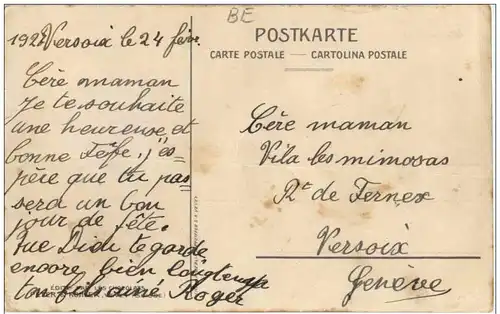 BE
POSTKARTE
CARTE POSTALE — CARTOLINA POSTALE
Versoix le 24 févr.
Cère maman
Je te souhaite
une heureuse et
bonne Fête. j'es-
père que tu pas-
sera un bon
jour de fête.
que Didi te garde
encore bien longtemps
ton fils aimé Roger
Cère maman
Vila les mimosas
Rte de Fernex
Versoix
Genève